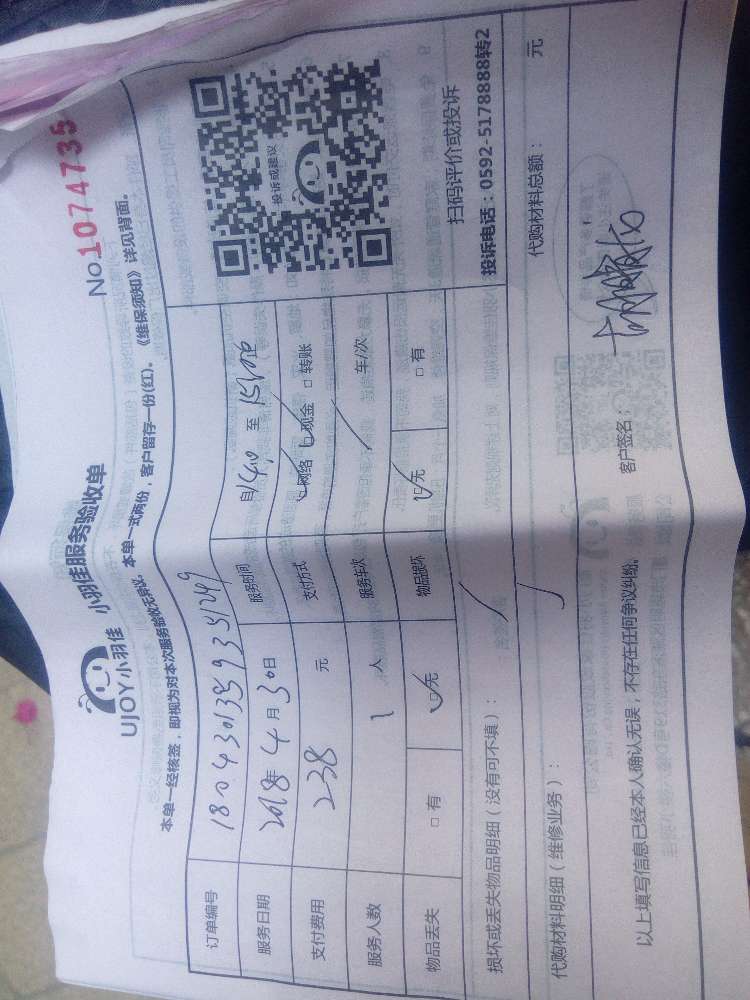 No.1074735
UJOY小羽佳
小羽佳服务验收单
本单一经核签，即视为对本次服务验收无异议。本单一式两份，客户留存一份(红)。《维保须知》详见背面。
订单编号
服务日期 2018年4月30日 服务时间 自 至
支付费用 238 元 支付方式 网络 现金 □转账
服务人数 1 人 服务车次 / 车/次
物品丢失 □有 □无 物品损坏 □无 □有
投诉或建议
扫码评价或投诉
投诉电话：0592-5178888转2
损坏或丢失物品明细（没有可不填）： /
代购材料明细（维修业务）： / 代购材料总额： 元
以上填写信息已经本人确认无误，不存在任何争议纠纷。 客户签名：